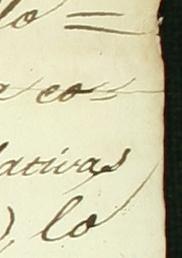 lo =
a co=
lativas
), lo